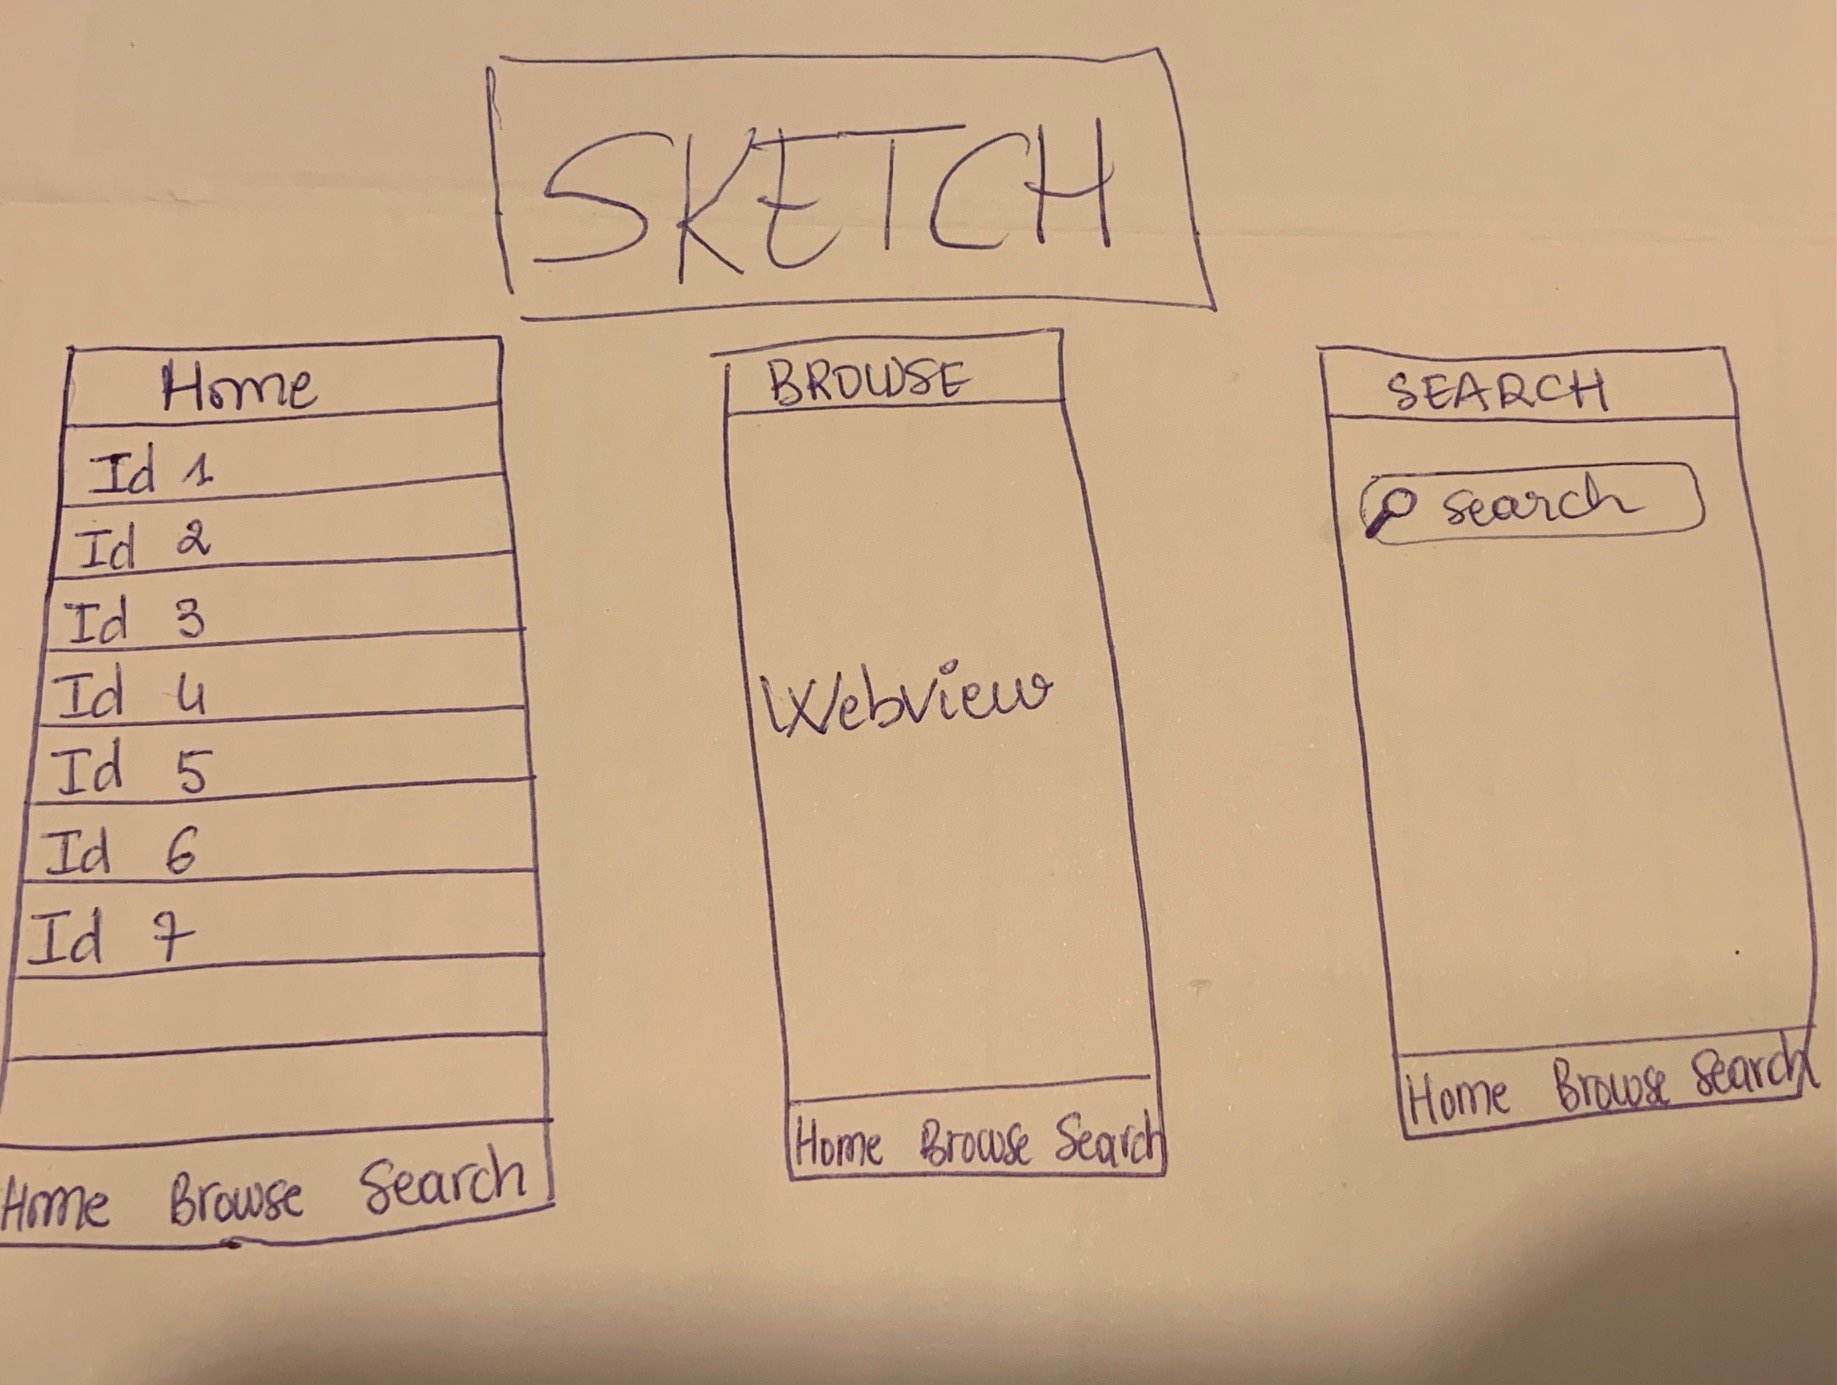 SKETCH
Home
Id 1
Id 2
Id 3
Id 4
Id 5
Id 6
Id 7
Home Browse Search
BROWSE
Webview
Home Browse Search
SEARCH
search
Home Browse Search